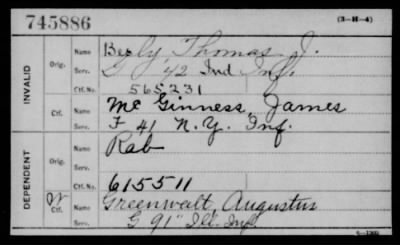 745886
(3-H-4)
INVALID
Orig.
Name Beely, Thomas J.
Serv. G 42 Ind Inf.
Ctf. No. 565231
Ctf.
Name McGinness, James
Serv. F 41 N.Y. Inf.
DEPENDENT
Orig.
Name Rab
Serv.
Ctf. No. 615511
W
Ctf.
Name Greenwalt, Augustus
Serv. G 91" Ill. Inf.